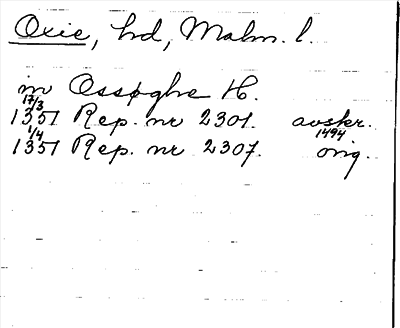 Oxie, hd, Malm. l.
in Ossøghræ H.
17/3
1351 Rep. nr 2301. avskr.
1/4 1494
1351 Rep. nr 2307. orig.